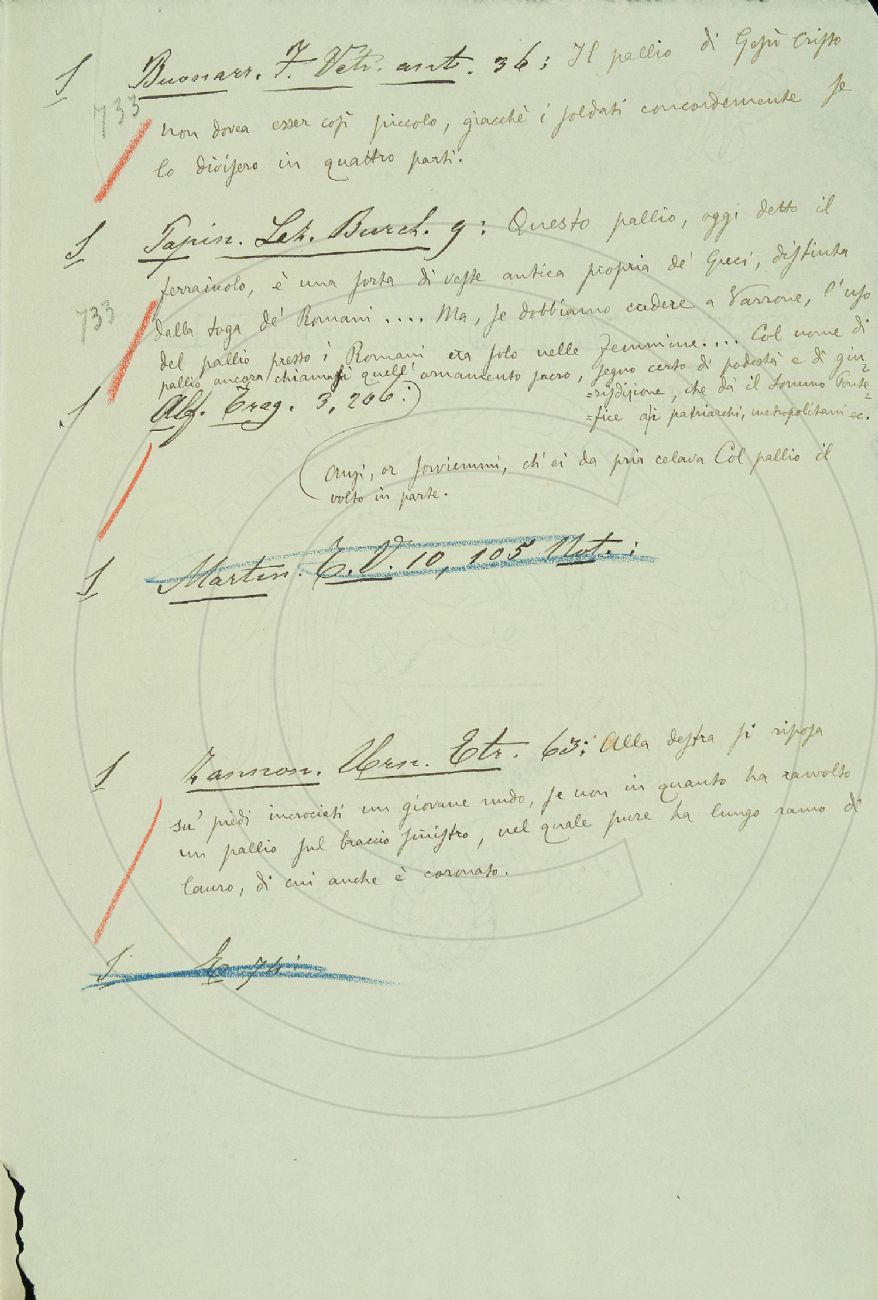 § Buonarr. F. Vetr. ant. 36: Il pallio di Gesù Cristo
733 non dovea esser così piccolo, giacchè i soldati concordemente se
lo divisero in quattro parti.
§ Papin. Lez. Burch. 9: Questo pallio, oggi detto il
ferraiuolo, è una sorta di veste antica propria de' Greci, distinta
733 dalla toga de' Romani .... Ma, se dobbiamo credere a Varrone, l'uso
del pallio presso i Romani era solo nelle femmine.... Col nome di
pallio ancora chiamasi quell' ornamento sacro, segno certo di podestà e di giu=
=risdizione, che dà il Sommo Ponte=
=fice ai patriarchi, metropolitani ec.
§ Alf. Trag. 3, 206:
Anzi, or sovviemmi, ch' ei da pria celava Col pallio il
volto in parte.
§ Martin. T. V. 10, 105 Not.:
§ Zannon. Urn. Etr. 63: Alla destra si riposa
su' piedi incrociati un giovane nudo, se non in quanto ha ravvolto
un pallio sul braccio sinistro, nel quale pure ha lungo ramo di
lauro, di cui anche è coronato.
§ E 74: